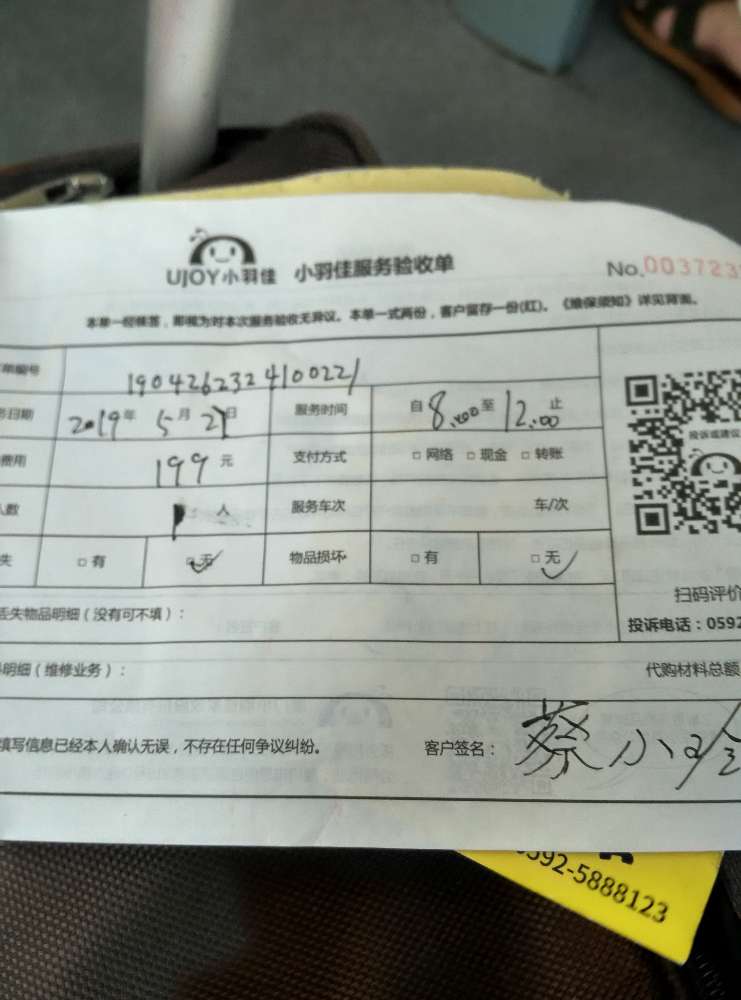 UJOY小羽佳 小羽佳服务验收单 No.003723
本单一经核签，即视为对本次服务验收无异议。本单一式两份，客户留存一份(红)。《维保须知》详见背面。
单编号 1904262324100221
务日期 2019年 5月 21日 服务时间 自 8:00 至 12:00 止
费用 199 元 支付方式 □ 网络 □ 现金 □ 转账
人数 1 人 服务车次 车/次
失 □ 有 □ 无 物品损坏 □ 有 □ 无
投诉或建议
扫码评价
丢失物品明细（没有可不填）： 投诉电话：0592
明细（维修业务）： 代购材料总额
填写信息已经本人确认无误，不存在任何争议纠纷。 客户签名： 蔡小
0592-5888123